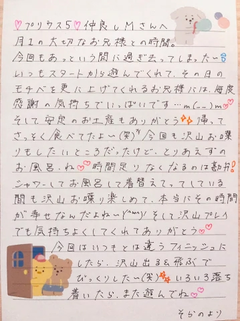 ♡プリウス5♡仲良しMさんへ
月1の大切なお兄様との時間。
今回もあっという間に過ぎ去ってしまった〜
いつもスタートから遊んでくれて、その日の
モチベを更に上げてくれるお兄様には、毎度
感謝の気持ちでいっぱいです…m(__)m♡
そして安定のお土産もありがとう 帰って
さっそく食べてたよ〜(笑) 今回も沢山お喋り
もしたいところだったけど、とりあえずの
お風呂ね♡♡時間足りなくなるのは勘弁
シャワーしてお風呂して着替えてってしている
間も沢山お喋り楽しめて、本当にその時間
が幸せなんだよね〜(^ω^)そして沢山プレイ
でも気持ちよくしてくれてありがとう♡
今回はいつもとは違うフィニッシュに
したら、沢山出る&飛ぶで
びっくりした〜(笑) いろいろ落ち
着いたら、また遊んでね♡
そらのより